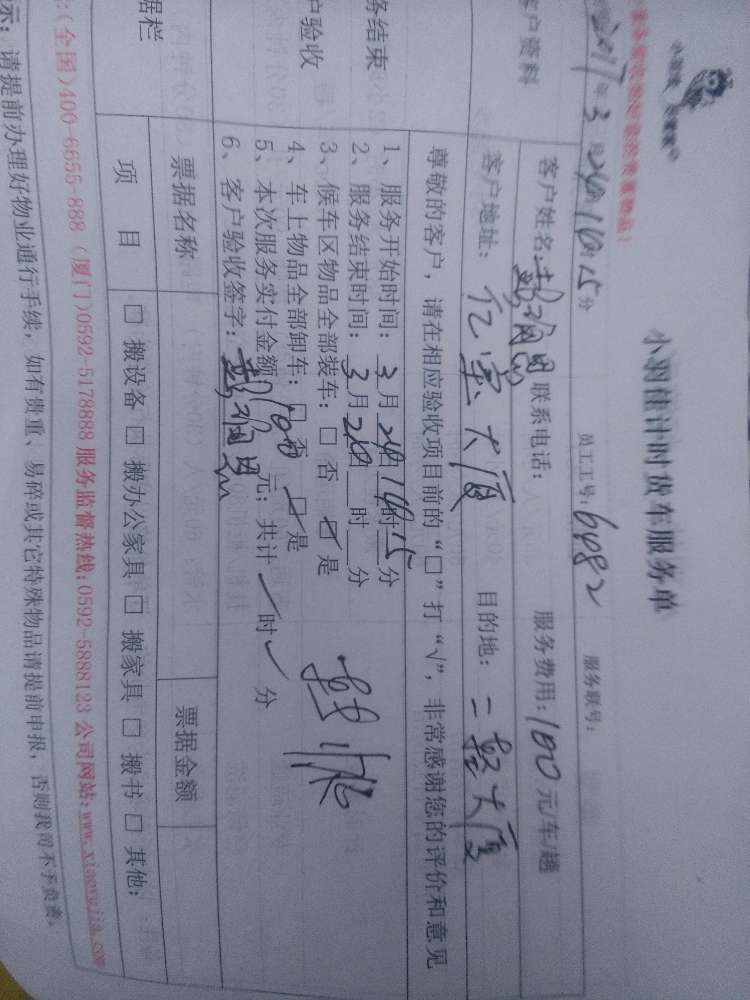 小羽佳计时货车服务单
2017年3月24日16时15分 员工工号：6082 服务联号：
客户资料
客户姓名： 联系电话： 服务费用：100元/车/趟
客户地址：亿宝大厦 目的地：二轻大厦
尊敬的客户，请在相应验收项目前的“□”打“√”，非常感谢您的评价和意见
务结束
户验收
1、服务开始时间：3月24日16时15分
2、服务结束时间：3月24日 时 分
3、候车区物品全部装车：□ 否 □是
4、车上物品全部卸车：□ 否 □是
5、本次服务实付金额100元；共计 时 分
6、客户验收签字：
据栏
票据名称 票据金额
项 目 □ 搬设备 □ 搬办公家具 □ 搬家具 □ 搬书 □ 其他：
:(全国)400-6655-888 (厦门)0592-5178888 服务监督热线:0592-5888123 公司网站:www.xiaoyujia.com
示：请提前办理好物业通行手续，如有贵重、易碎或其它特殊物品请提前申报，否则我司不予负责。